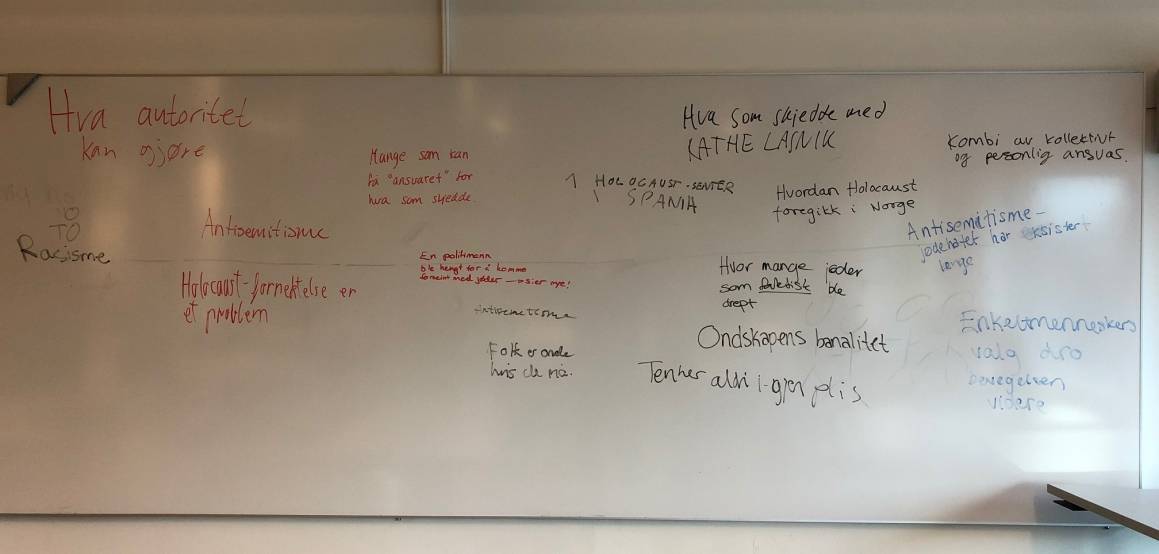 Hva autoritet
kan gjøre
TO
Rasisme
Antisemitisme
Holocaust-fornektelse er
et problem
Mange som kan
få "ansvaret" for
hva som skjedde.
En politimann
ble hengt for å komme
med jøder → sier mye!
Antisemetisme
Folk er onde
hvis de må.
1 HOLOCAUST-SENTER
I SPANIA
Hva som skjedde med
KATHE LASNIK
Hvordan Holocaust
foregikk i Norge
Hvor mange jøder
som faktisk ble
drept
Ondskapens banalitet
Tenker aldri igjen plis
Kombi av kollektivt
og personlig ansvar.
Antisemitisme -
jødehatet har eksistert
lenge
Enkeltmenneskers
valg dro
bevegelsen
videre